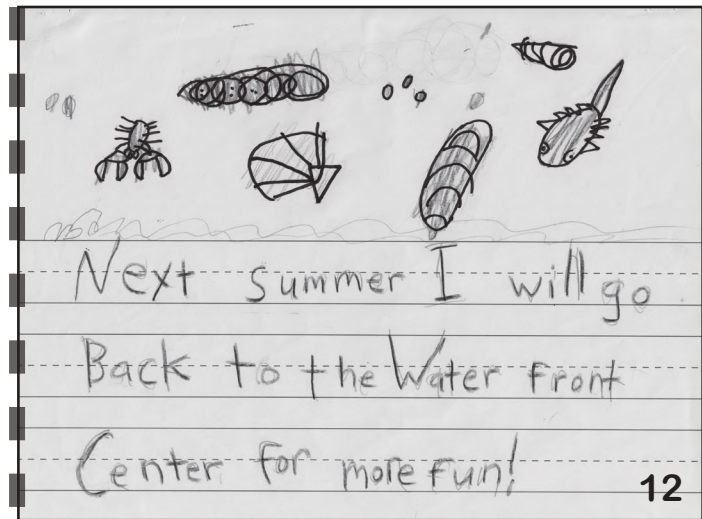 Next summer I will go
Back to the Water Front
Center for more fun!
12